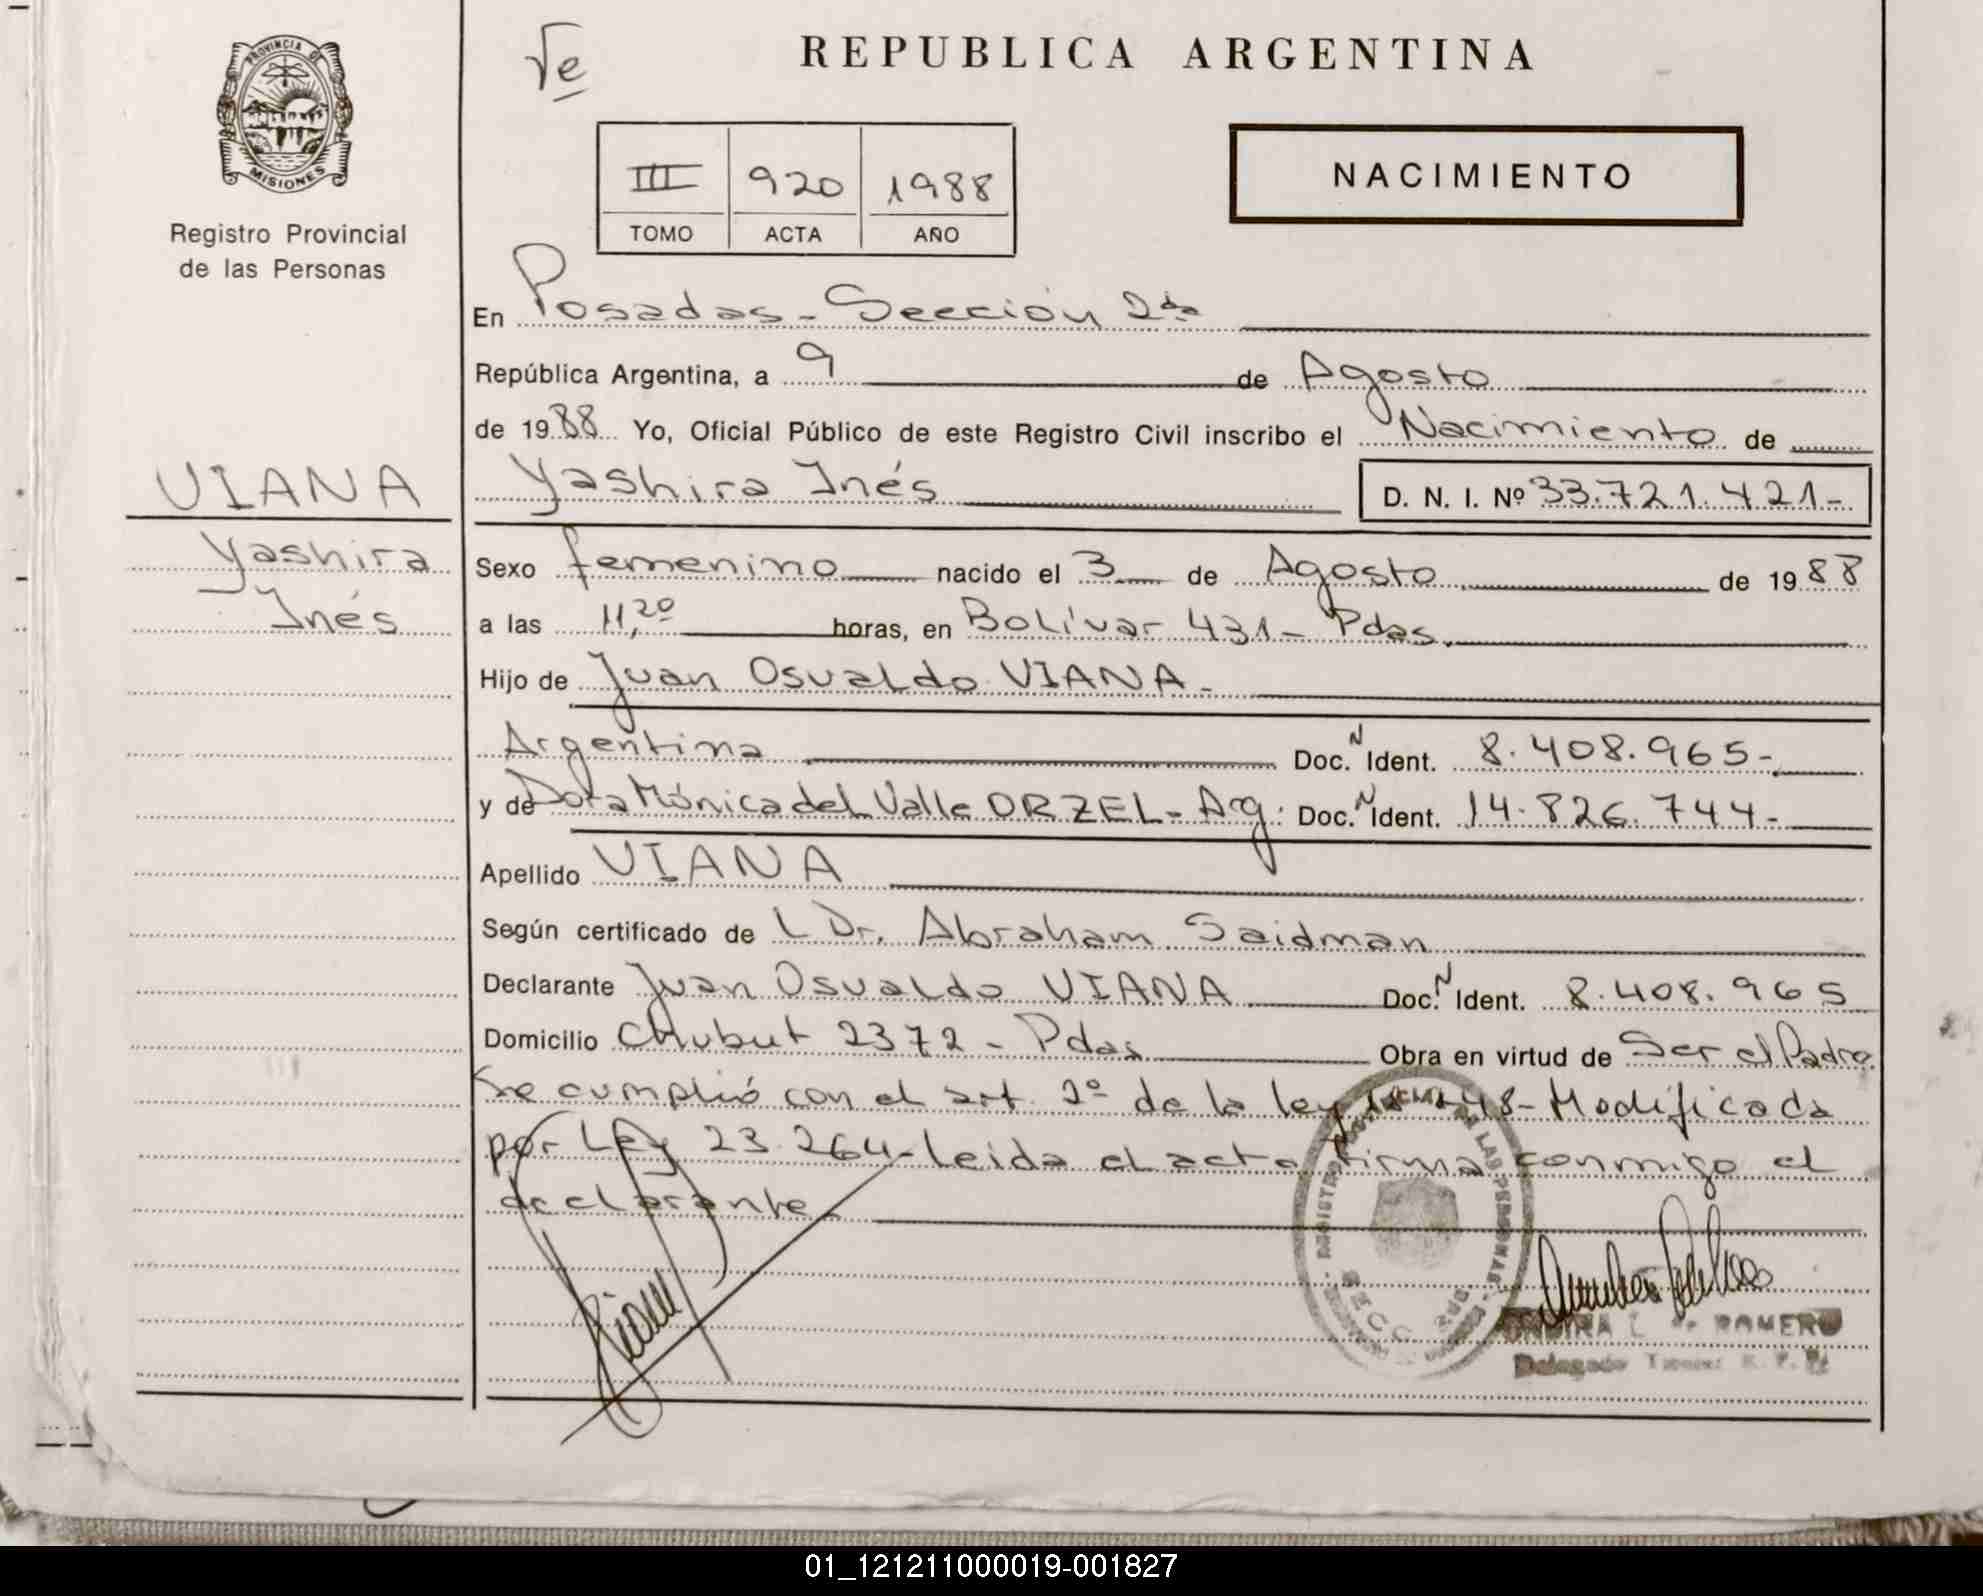 PROVINCIA DE
MISIONES
Registro Provincial
de las Personas
VIANA
Yashira
Inés
REPUBLICA ARGENTINA
III 920 1988
TOMO ACTA AÑO
NACIMIENTO
En Posadas - Sección 2da
República Argentina, a 9 de Agosto
de 1988 Yo, Oficial Público de este Registro Civil inscribo el Nacimiento de
Yashira Inés D. N. I. Nº 33.721.421-
Sexo femenino nacido el 3 de Agosto de 1988
a las 11,20 horas, en Bolívar 431 - Pdas.
Hijo de Juan Osvaldo VIANA -
Argentina Doc. N Ident. 8.408.965-
y de Dora Mónica del Valle ORZEL - Arg: Doc. N Ident. 14.826.744-
Apellido VIANA
Según certificado de L Dr. Abraham Saidman
Declarante Juan Osvaldo VIANA Doc. N Ident. 8.408.965
Domicilio Chubut 2372 - Pdas Obra en virtud de Ser el Padre
Se cumplió con el art. 2º de la ley 48 - Modificada
por Ley 23.264 - leida el acta firma conmigo el
declarante.
REGISTRO LAS PERSONAS
SECC
ROMERO
Delegado
01_121211000019-001827